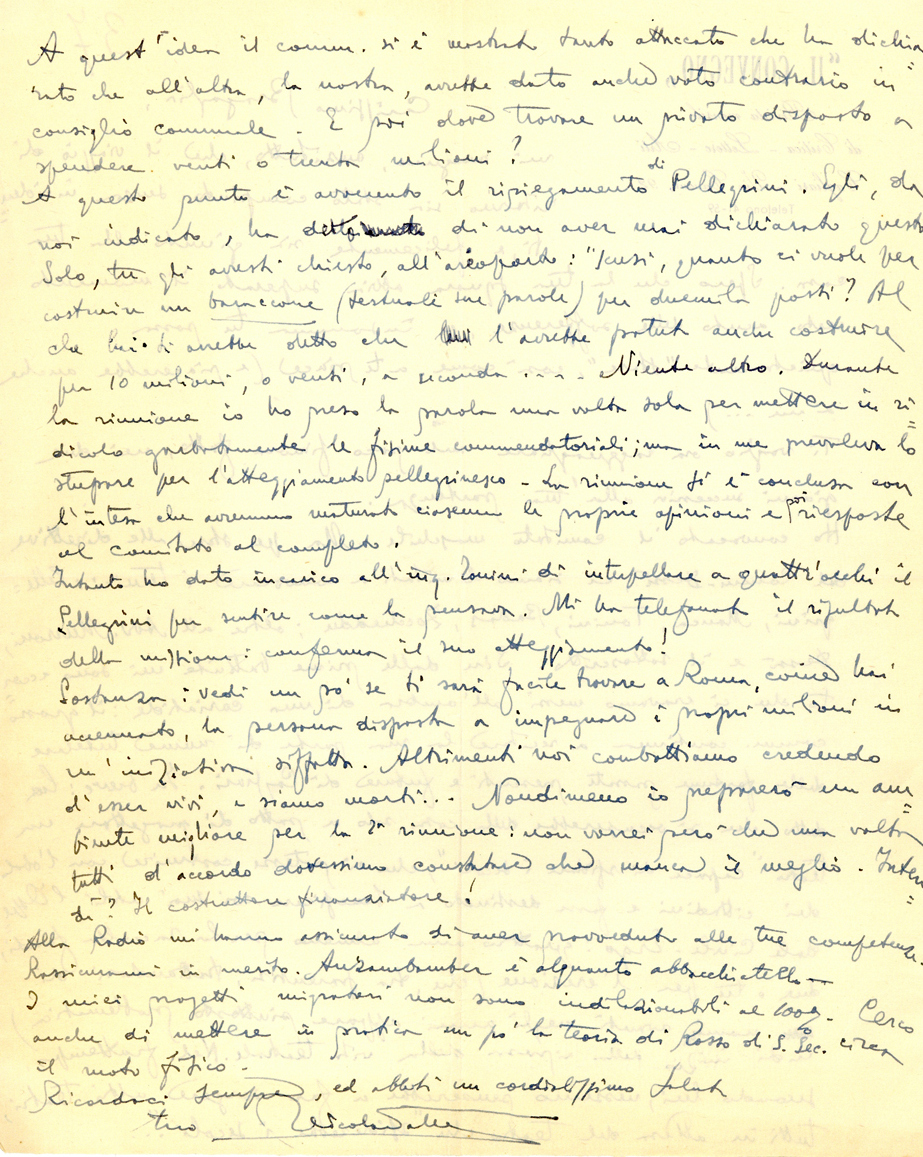 A quest'idea il comm. si è mostrato tanto attaccato che ha dichia=
rato che all'altra, la nostra, avrebbe dato anche voto contrario in
consiglio comunale. E poi dove trovare un privato disposto a
spendere venti o trenta milioni?
A questo punto è avvenuto il ripiegamento di Pellegrini. Egli, da
noi indicato, ha detto di non aver mai dichiarato questo.
Solo, tu gli avresti chiesto, all'aeroporto: "Scusi, quanto ci vuole per
costruire un baraccone (testuali sue parole) per duemila posti? Al
che lui ti avrebbe detto che l'avrebbe potuto anche costruire
per 10 milioni, o venti, a seconda .... Niente altro. Durante
la riunione io ho preso la parola una volta sola per mettere in ri=
dicolo garbatamente le fisime commendatoriali; ma in me prevaleva lo
stupore per l'atteggiamento pellegrinesco - La riunione si è conclusa con
l'intesa che avremmo maturato ciascuno le proprie opinioni e poi riesposte
al comitato al completo.
Intanto ho dato incarico all'ing. Zonini di interpellare a quattr'occhi il
Pellegrini per sentire come la pensava. Mi ha telefonato il risultato
della missione: conferma il suo atteggiamento!
Sostanza: vedi un po' se ti sarà facile trovare a Roma, come hai
accennato, la persona disposta a impegnare i propri milioni in
un'iniziativa siffatta. Altrimenti noi combattiamo credendo
d'esser vivi, e siamo morti... Nondimeno io preparerò un am=
biente migliore per la 2ª riunione: non vorrei però che una volta
tutti d'accordo dovessimo constatare che manca il meglio. Inten=
di? Il costruttore finanziatore!
Alla Radio mi hanno assicurato di aver provveduto alle tue competenze.
Rassicurami in merito. è alquanto abbacchiatello—
I miei progetti migratori non sono indilazionabili al 100%. Cerco
anche di mettere in pratica un po' la teoria di Rosso di S. Sec. circa
il moto fisico -
Ricordaci sempre, ed abbiti un cordialissimo saluto
tuo